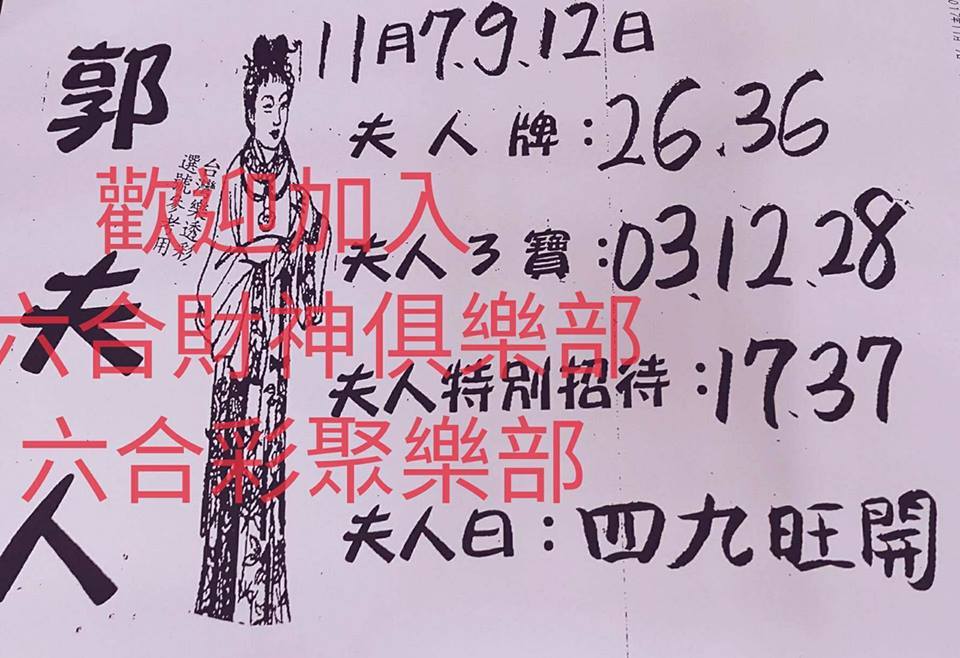 郭夫人
11月7.9.12日
夫人牌:26.36
台灣樂透彩
選號參考用
歡迎加入
夫人3寶:03.12.28
六合財神俱樂部
夫人特別招待:17.37
六合彩聚樂部
夫人曰:四九旺開